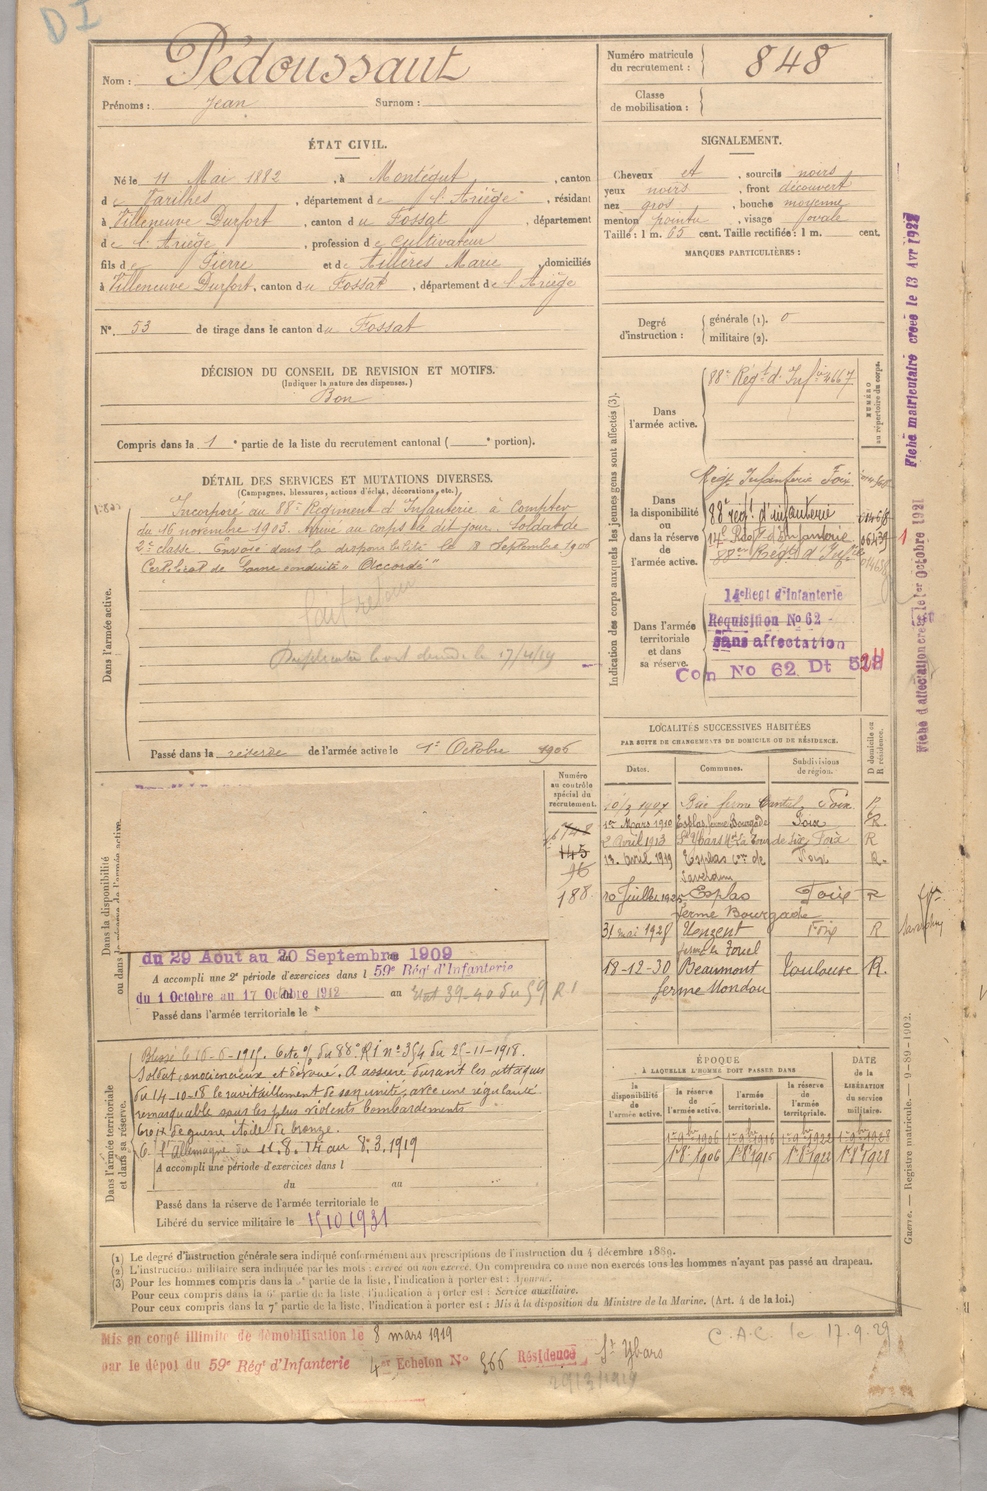 DI
Nom : Pédoussaut
Prénoms : Jean Surnom :
Numéro matricule du recrutement : 848
Classe de mobilisation :
ÉTAT CIVIL.
Né le 11 Mai 1882, à Montégut, canton
de Varilhes, département de l'Ariège, résidant
à Villeneuve Durfort, canton du Fossat, département
de l'Ariège, profession de Cultivateur
fils de Pierre et de Tillères Marie, domiciliés
à Villeneuve Durfort, canton du Fossat, département de l'Ariège
N° 53 de tirage dans le canton du Fossat
SIGNALEMENT.
Cheveux et, sourcils noirs
yeux noirs, front découvert
nez gros, bouche moyenne
menton pointu, visage ovale
Taille : 1 m. 65 cent. Taille rectifiée : 1 m. cent.
MARQUES PARTICULIÈRES :
Degré d'instruction : générale (1). 0
militaire (2).
DÉCISION DU CONSEIL DE REVISION ET MOTIFS.
(Indiquer la nature des dispenses.)
Bon
Compris dans la 1e partie de la liste du recrutement cantonal ( e portion).
DÉTAIL DES SERVICES ET MUTATIONS DIVERSES.
(Campagnes, blessures, actions d'éclat, décorations, etc.)
Dans l'armée active.
Incorporé au 88e Régiment d'Infanterie à Compter
du 16 novembre 1903. Arrivé au corps le dit jour. Soldat de
2e classe. Envoyé dans la disponibilité le 8 Septembre 1906
Certificat de bonne conduite "Accordé"
fait retour
Passé dans la réserve de l'armée active le 1er Octobre 1906
Indication des corps auxquels les jeunes gens sont affectés (3).
NUMÉRO au répertoire du corps.
Dans l'armée active.
88e Régt d'Infie 4667
Dans la disponibilité ou dans la réserve de l'armée active.
Régt Infanterie Foix
88e régt d'infanterie
14e Régt d'Infanterie
88e Régt d'Infie
Dans l'armée territoriale et dans sa réserve.
14e Regt d'Infanterie
Requisition No 62
sans affectation
Con No 62 Dt
Fiche matriculaire créée le 13 Avr 1927
Fiche d'affectation créée le 1er Octobre 1921
LOCALITÉS SUCCESSIVES HABITÉES
PAR SUITE DE CHANGEMENTS DE DOMICILE OU DE RÉSIDENCE.
Dates. Communes. Subdivisions de région. D domicile ou R résidence.
1er Mars 1910 Esplas ferme Bourgade Foix R.
2 Avril 1913 St Ybars Foix R
Avril 1919 Esplas con de Saverdun Foix R.
20 Juillet 1925 Esplas ferme Bourgade Foix R
31 mai 1928 Unzent Foix R
18-12-30 Beaumont ferme Mondou Toulouse R.
Dans la disponibilité ou dans la réserve de l'armée active.
Numéro au contrôle spécial du recrutement.
145
188
du 29 Août au 20 Septembre 1909
A accompli une 2e période d'exercices dans l 59e Régt d'Infanterie
du 1 Octobre au 17 Octobre 1912 au
Passé dans l'armée territoriale le
Dans l'armée territoriale et dans sa réserve.
Blessé le 16-6-1915. Cité o/ du 88e RI n° 354 du 25-11-1918.
Soldat consciencieux et dévoué. A assuré durant les attaques
du 14-10-18 le ravitaillement de son unité, avec une régularité
remarquable sous les plus violents bombardements
Croix de guerre étoile de bronze.
C. l'Allemagne du 11.8.14 au 8.3.1919
A accompli une période d'exercices dans l
du au
Passé dans la réserve de l'armée territoriale le
Libéré du service militaire le 15 10 1931
ÉPOQUE
À LAQUELLE L'HOMME DOIT PASSER DANS
la disponibilité de l'armée active. la réserve de l'armée active. l'armée territoriale. la réserve de l'armée territoriale.
DATE DE LA LIBÉRATION du service militaire.
1r 9bre 1906 1r 9bre 1916 1r 9bre 1922 1r 9bre 1928
Guerre. — Registre matricule. — 9-89-1902.
(1) Le degré d'instruction générale sera indiqué conformément aux prescriptions de l'instruction du 4 décembre 1889.
(2) L'instruction militaire sera indiquée par les mots : exercé ou non exercé. On comprendra comme non exercés tous les hommes n'ayant pas passé au drapeau.
(3) Pour les hommes compris dans la 5e partie de la liste, l'indication à porter est : Ajourné.
Pour ceux compris dans la 6e partie de la liste, l'indication à porter est : Service auxiliaire.
Pour ceux compris dans la 7e partie de la liste, l'indication à porter est : Mis à la disposition du Ministre de la Marine. (Art. 4 de la loi.)
Mis en congé illimité de démobilisation le 8 mars 1919
par le dépot du 59e Régt d'Infanterie 4e Echelon No 566 Résidence St Ybars
C.A.C. le 17.9.29